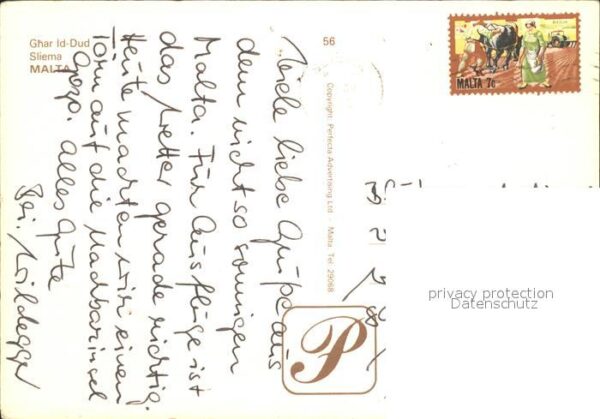 Għar Id-Dud
Sliema
MALTA
56
MALTA 7c
Copyright: Perfecta Advertising Ltd - Malta. Tel 29068
P
Viele liebe Grüße aus
dem nicht so sonnigen
Malta. Für Ausflüge ist
das Wetter gerade richtig.
Heute machten wir einen
Törn auf die Nachbarinsel
Gozo. Alles Gute
privacy protection
Datenschutz